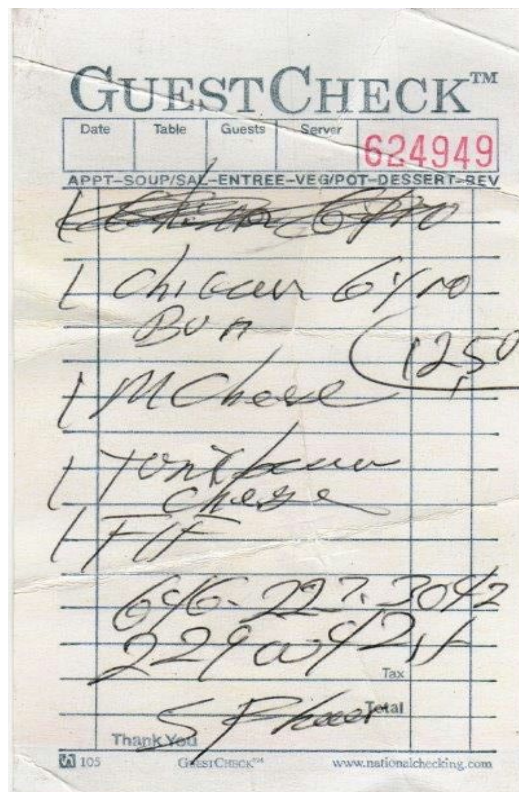 GUESTCHECK™
Date Table Guests Server
624949
APPT–SOUP/SAL–ENTREE–VEG/POT–DESSERT–BEV
Gyro
1 Chicken Gyro
Bun
12,50
1 M Cheese
1
Cheese
1 FF
646-227-3042
Tax
Total
Thank You
105 GUESTCHECK™ www.nationalchecking.com